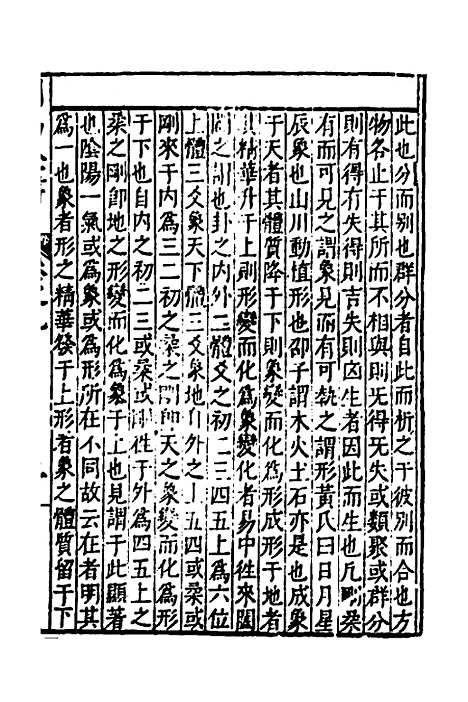 此也分而别也群分者自此而析之于彼别而合也方
物各止于其所而不相與則无得无失或類聚或群分
則有得有失得則吉失則凶生者因此而生也凡剛柔
有而可見之謂象見而有可執之謂形黃氏曰日月星
辰象也山川動植形也邵子謂水火土石亦是也成象
于天者其體質降于下則象變而化為形成形于地者
其精華升于上則形變而化為象變化者易中徃來闔
闢之謂也卦之内外二體爻之初二三四五上為六位
上體三爻象天下體三爻象地自外之上五四或柔或
剛來于内為三二初之柔之剛即天之象變而化為形
于下也自内之初二三或柔或剛徃于外為四五上之
柔之剛即地之形變而化為象于上也見謂于此顯著
也陰陽一氣或為象或為形所在不同故云在者明其
為一也象者形之精華發于上形者象之體質留于下